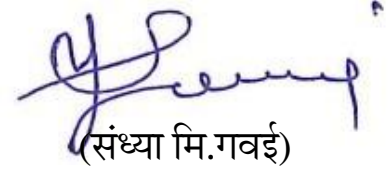 (संध्या मि.गवई)